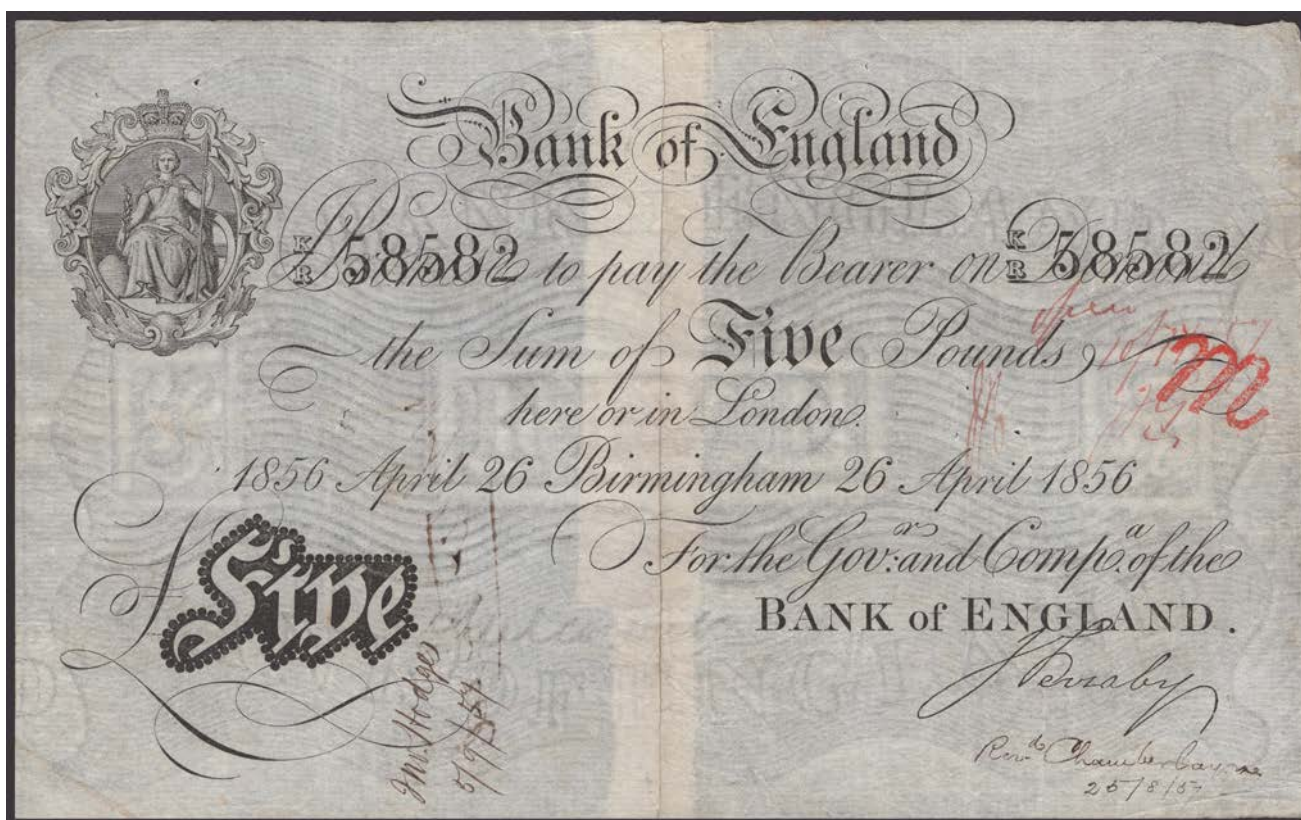 Bank of England
K/R 58582 K/R 58582
I Promise to pay the Bearer on Demand
the Sum of Five Pounds
here or in London.
1856 April 26 Birmingham 26 April 1856
For the Govr: and Compa. of the
BANK of ENGLAND.
£ Five
Hodges
5/9/57
Revd Chamberlayne
25/8/57
m